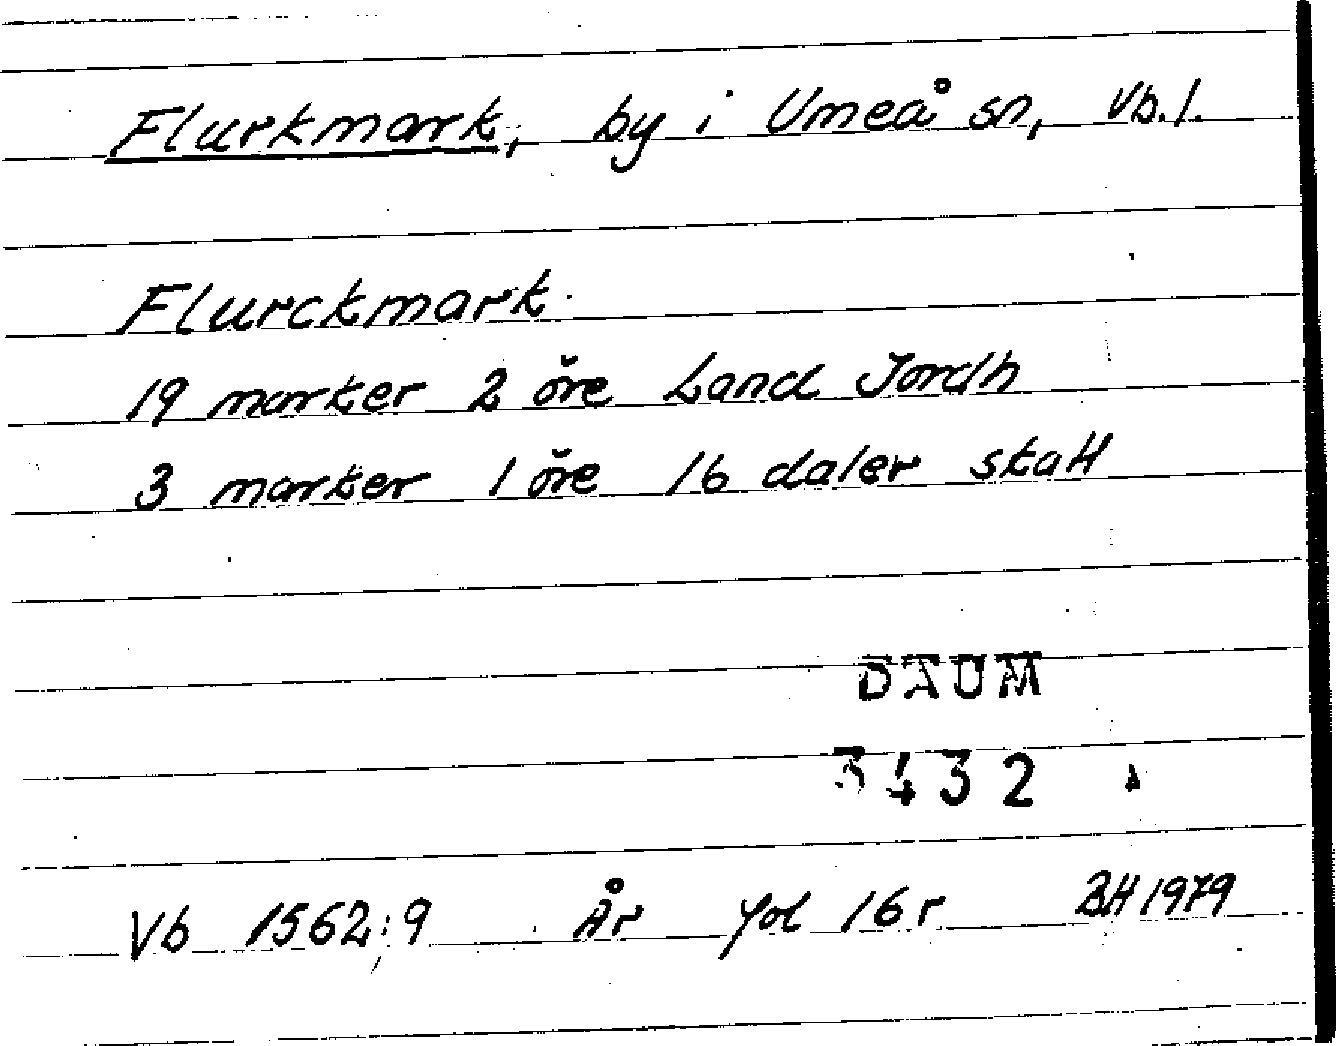 Flurkmark, by i Umeå sn, Vb.l.
Flurckmark
19 marker 2 öre Land Jordh
3 marker 1 öre 16 daler skatt
DAUM
3432
Vb 1562:9 År fol 16r BH 1979